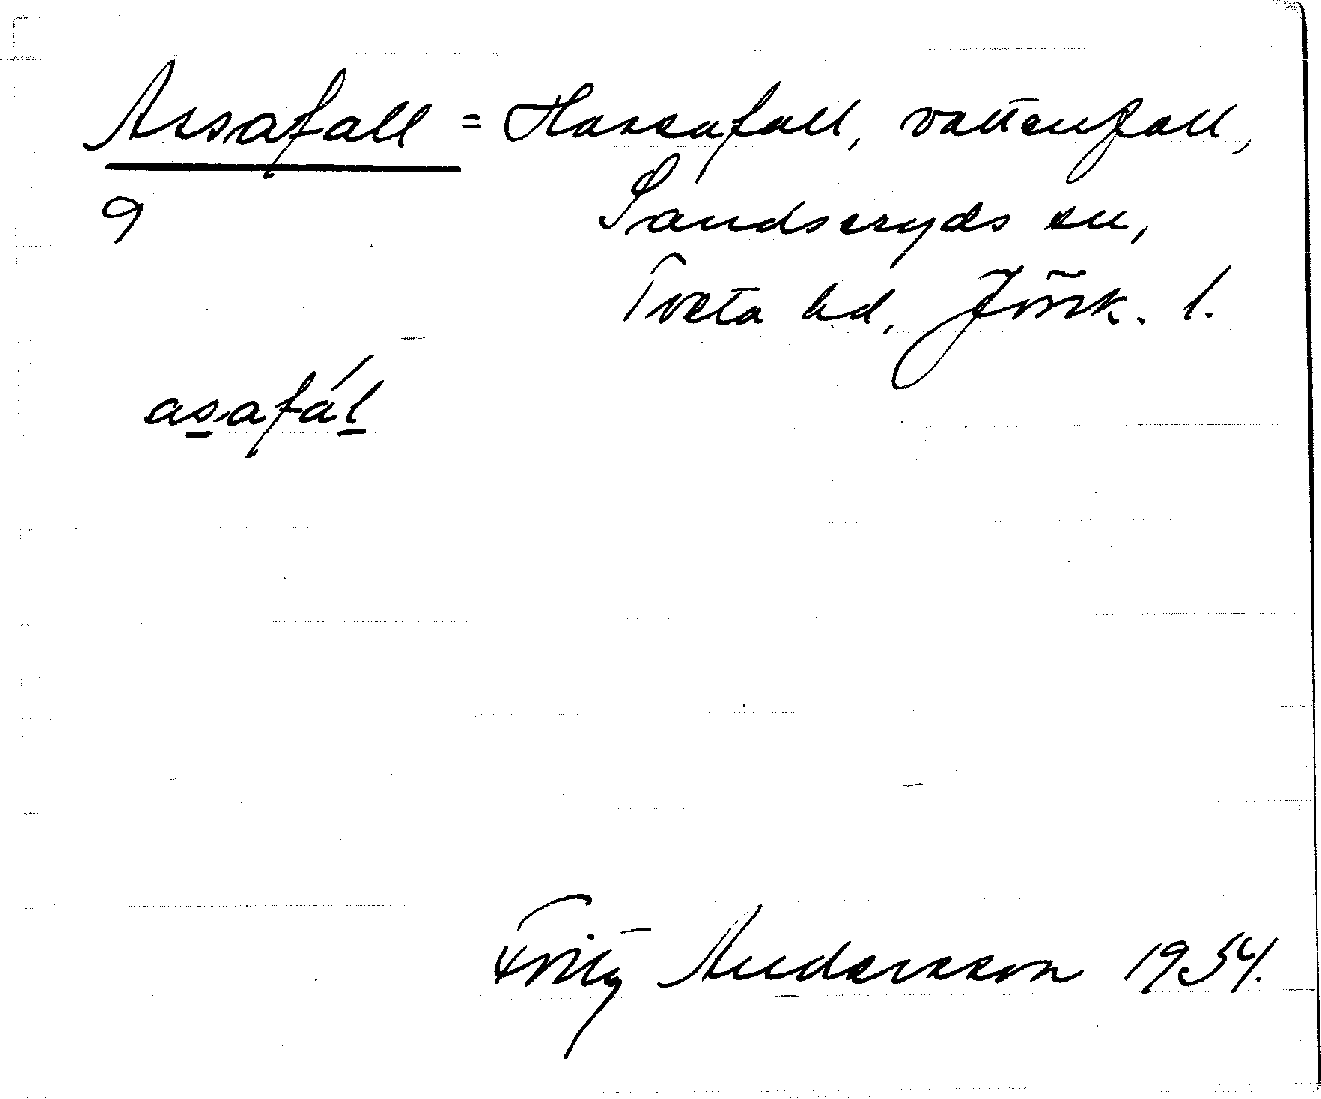 Assafall = Hassafall, vattenfall,
9 Sandseryds sn,
Tveta hd. Jönk. l.
asafál
Fritz Andersson 1934.